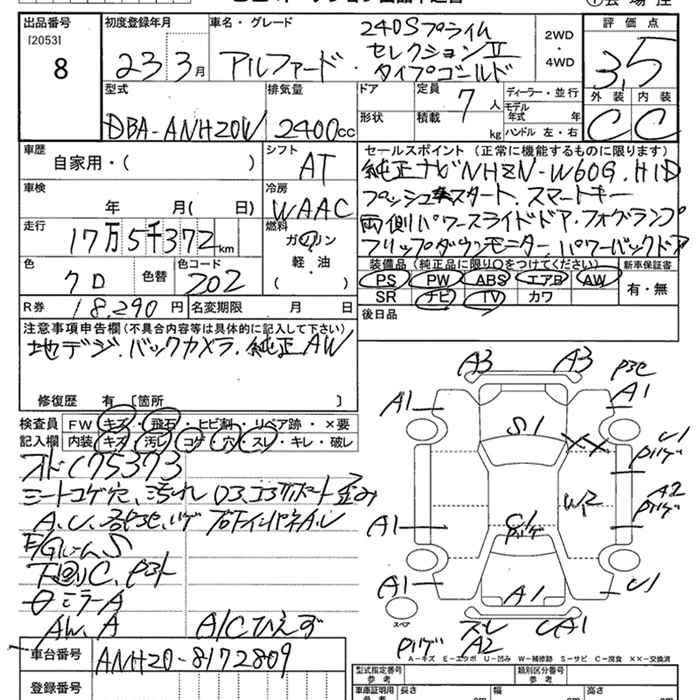 出品番号 初度登録年月 車名・グレード 評価点
[2053]
8
23年3月
アルファード・240Sプライムセレクション II タイプゴールド
2WD・4WD
3.5
型式 排気量 ドア 定員 ディーラー・並行 外装 内装
DBA-ANH20W 2400cc 7人
形状 積載 kg モデル年式 年 ハンドル 左・右
C C
車歴 シフト セールスポイント (正常に機能するものに限ります)
自家用・( ) AT
純正ナビNHZN-W60G.HID
車検 冷房
プッシュスタート.スマートキー
年 月( 日) WAAC
両側パワースライドドア.フォグランプ
走行 燃料
17万5千372km ガソリン・軽油 ( )
フリップダウンモニター パワーバックドア
装備品 (純正品に限り○をつけてください) 新車保証書
色 色替 色コード
クロ 202
PS PW ABS エアB AW 有・無
SR ナビ TV カワ
R券 18,290円 名変期限 月 日
後日品
注意事項申告欄(不具合内容等は具体的に記入して下さい)
地デジ.バックカメラ.純正AW
修復歴 有 [箇所 ]
検査員記入欄
FW キズ・飛石・ヒビ割・リペア跡・×要
内装 キズ・汚レ・コゲ・穴・スレ・キレ・破レ
175373
シートコゲ穴、汚れ
F/Gルーム S
下回りC、
ミラーA
AW.A A/Cひえず
A3 A3
A1 A1
S1 XX U1
W2 A2
A1
A1 A1 U1
スペア スレ UA1
A2
A-キズ E-エクボ U-凹ミ W-補修跡 S-サビ C-腐食 ××-交換済
車台番号 ANH20-8172809
型式指定番号 参考 類別区分番号 参考
登録番号
車庫証明用 参考 長さ cm 幅 cm 高さ cm